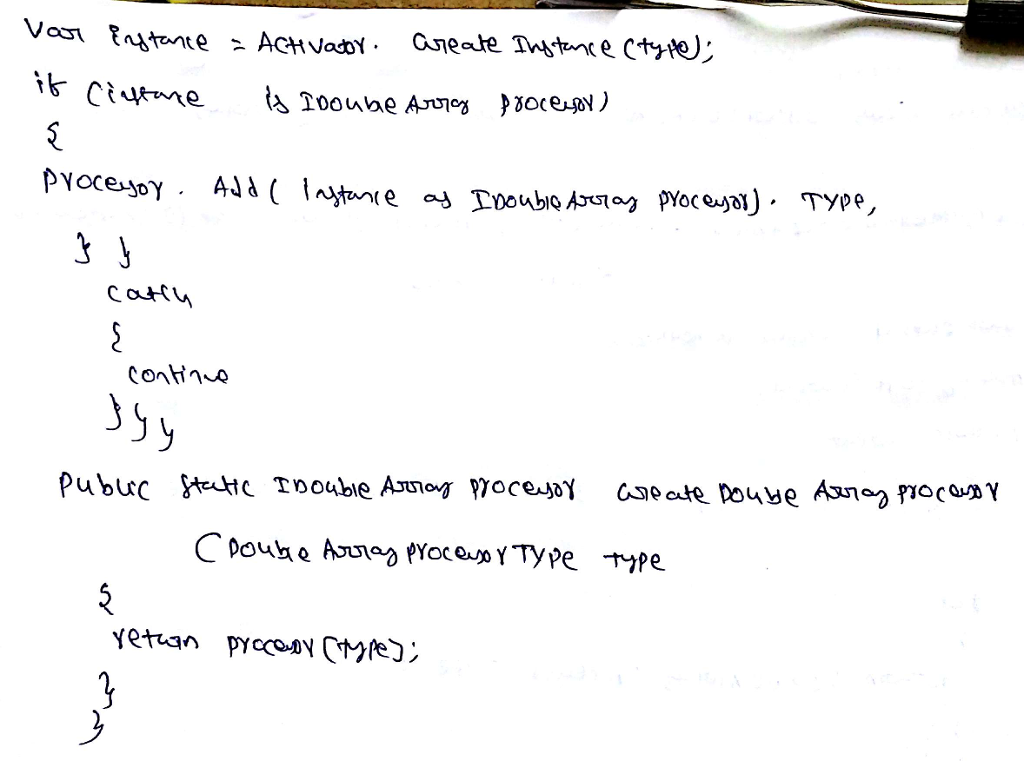 Var instance = Activator. Create Instance (type);
if (instance is IDouble Array processor)
{
processor. Add ( Instance as IDouble Array processor). TYPE,
} }
catch
{
continue
} } }
Public Static IDouble Array processor Create Double Array processor
( Double Array processor TYPE type
{
return processor (type);
}
}